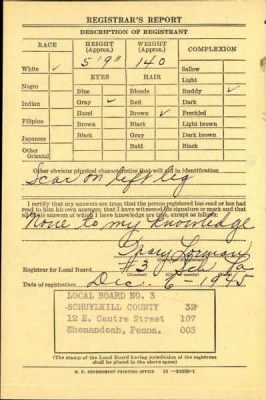 REGISTRAR'S REPORT
DESCRIPTION OF REGISTRANT
RACE
HEIGHT (Approx.)
WEIGHT (Approx.)
COMPLEXION
5'9"
140
White ✓
Sallow
Light
EYES
HAIR
Ruddy ✓
Negro
Blue
Blonde
Dark
Indian
Gray ✓
Red
Freckled
Hazel
Brown ✓
Light brown
Filipino
Brown
Black
Dark brown
Japanese
Black
Gray
Black
Other Oriental
Bald
Other obvious physical characteristics that will aid in identification
Scar on left leg
I certify that my answers are true; that the person registered has read or has had
read to him his own answers; that I have witnessed his signature or mark and that
all of his answers of which I have knowledge are true, except as follows:
None to my knowledge
Registrar for Local Board #3 Sch. Pa
Date of registration Dec. 6-1945
LOCAL BOARD NO. 3
SCHUYLKILL COUNTY 32
12 E. Centre Street 107
Shenandoah, Penna. 003
(The stamp of the Local Board having jurisdiction of the registrant
shall be placed in the above space.)
U. S. GOVERNMENT PRINTING OFFICE